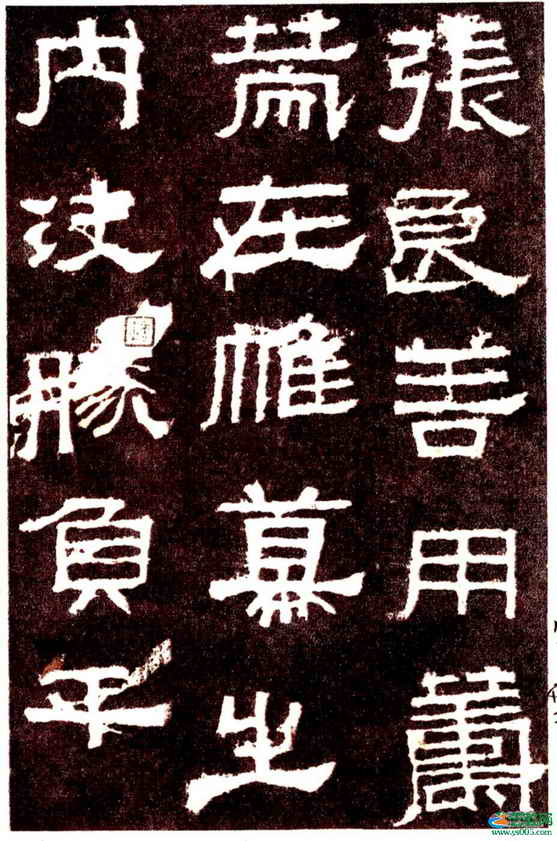 張良善用籌
策在帷幕之
内決勝負千
www.ys005.com